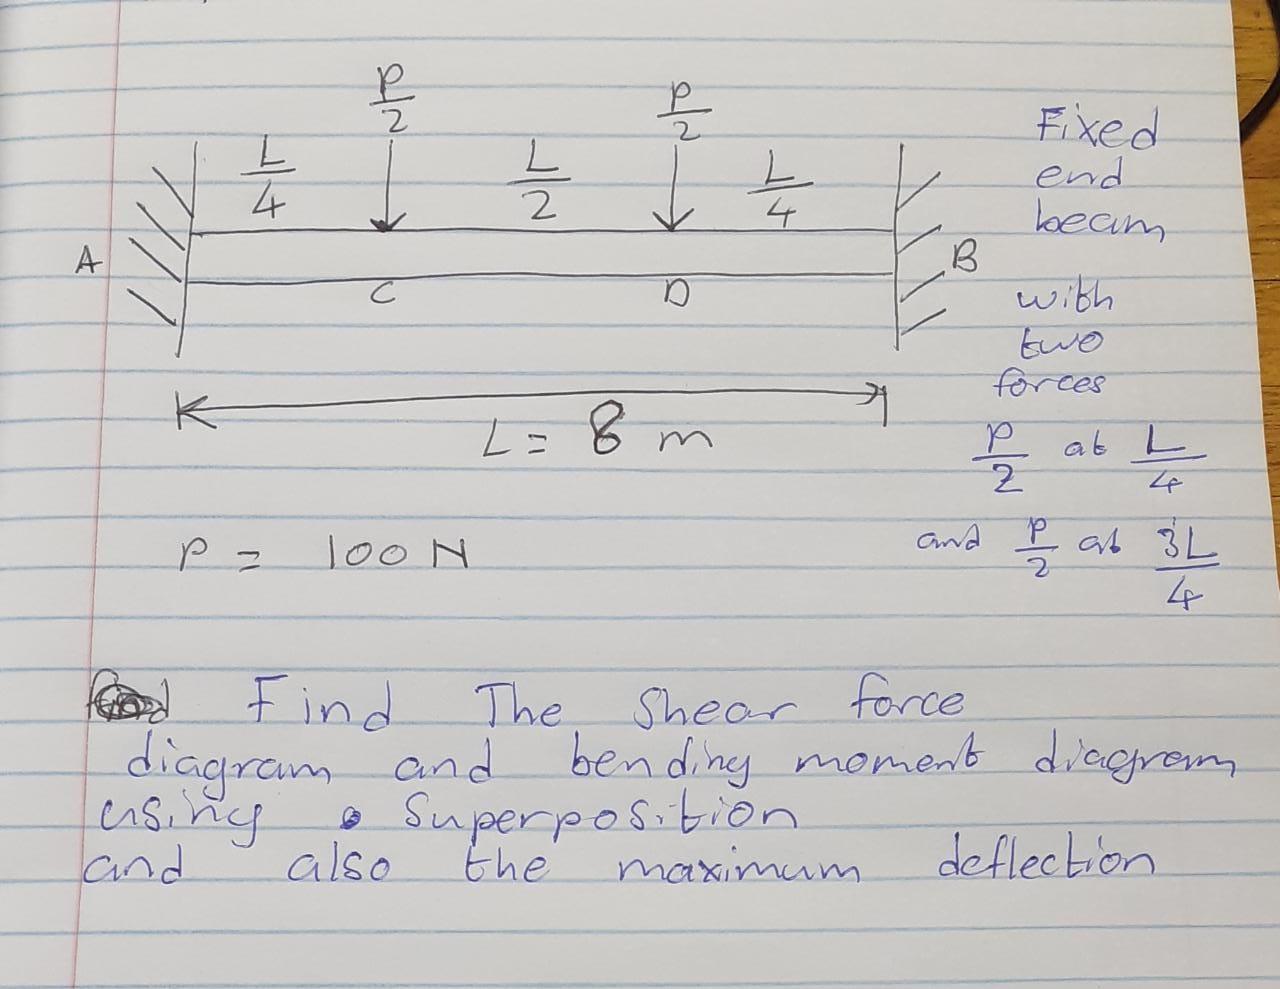 P/2
P/2
L/4
L/2
L/4
A
B
C
D
L = 8 m
P = 100 N
Fixed
end
beam
with
two
forces
P/2 at L/4
and P/2 at 3L/4
Find The Shear force
diagram and bending moment diagram
using Superposition
and also the maximum deflection